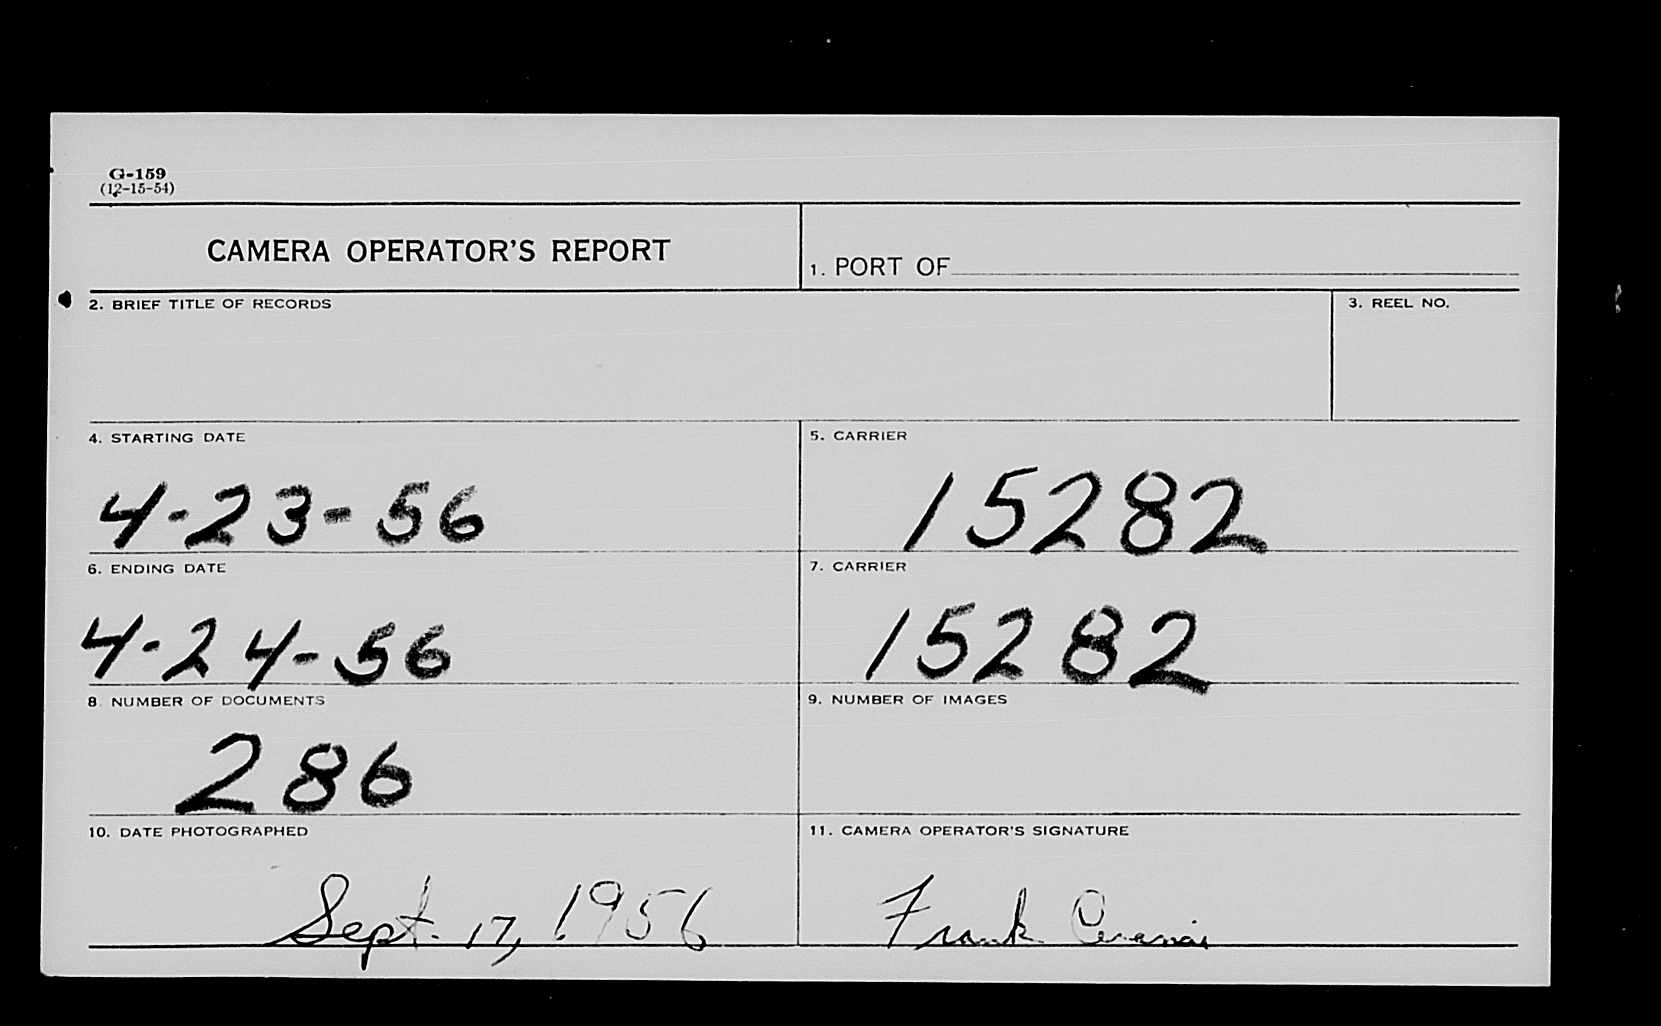 G-159
(12-15-54)
CAMERA OPERATOR'S REPORT
1. PORT OF
2. BRIEF TITLE OF RECORDS
3. REEL NO.
4. STARTING DATE
5. CARRIER
4-23-56
15282
6. ENDING DATE
7. CARRIER
4-24-56
15282
8. NUMBER OF DOCUMENTS
9. NUMBER OF IMAGES
286
10. DATE PHOTOGRAPHED
11. CAMERA OPERATOR'S SIGNATURE
Sept. 17, 1956
Frank